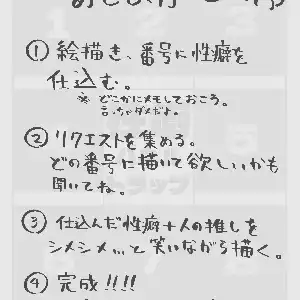 ① 絵描き、番号に性癖を
仕込む。
※ どこかにメモしておこう。
言っちゃダメだよ。
② リクエストを集める。
どの番号に描いて欲しいかも
聞いてね。
③ 仕込んだ性癖+人の推しを
シメシメ…と笑いながら描く。
④ 完成!!!!